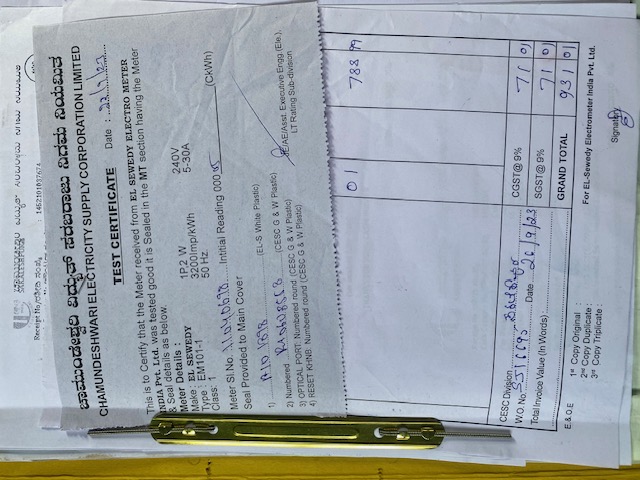 ಚಾಮುಂಡೇಶ್ವರಿ ವಿದ್ಯುತ್ ಸರಬರಾಜು ನಿಗಮ ನಿಯಮಿತ
CHAMUNDESHWARI ELECTRICITY SUPPLY CORPORATION LIMITED
TEST CERTIFICATE
Date :
This is to Certify that the Meter received from EL SEWEDY ELECTRO METER
INDIA Pvt. Ltd. was tested good it is Sealed in the MT section having the Meter
& Seal details as below
Meter Details :
Make : EL SEWEDY
Type : EM101-1
Class: 1
1P.2 W
3200Imp/kWh
50 Hz.
240V
5-30A
Meter Sl.No. Intitial Reading 000 (CkWh)
Seal Provided to Main Cover
1) (EL-S White Plastic)
2) Numbered (CESC G & W Plastic)
3) OPTICAL PORT: Numbered round (CESC G & W Plastic)
4) RESET KPINB: Numbered round (CESC G & W Plastic)
AE/Asst. Executive Engg.(Ele.),
LT Rating Sub-division
Receipt No/ 1462101B3767A
01 788 99
CESC Division
W.O. No. Date 26/9/23
Total Invoice Value (In Words) :
CGST@ 9% 71 01
SGST@ 9% 71 01
GRAND TOTAL 931 01
E.& O.E
1st Copy Original :
2nd Copy Duplicate :
3rd Copy Triplicate :
For EL-Sewedy Electrometer India Pvt. Ltd.
Signatory